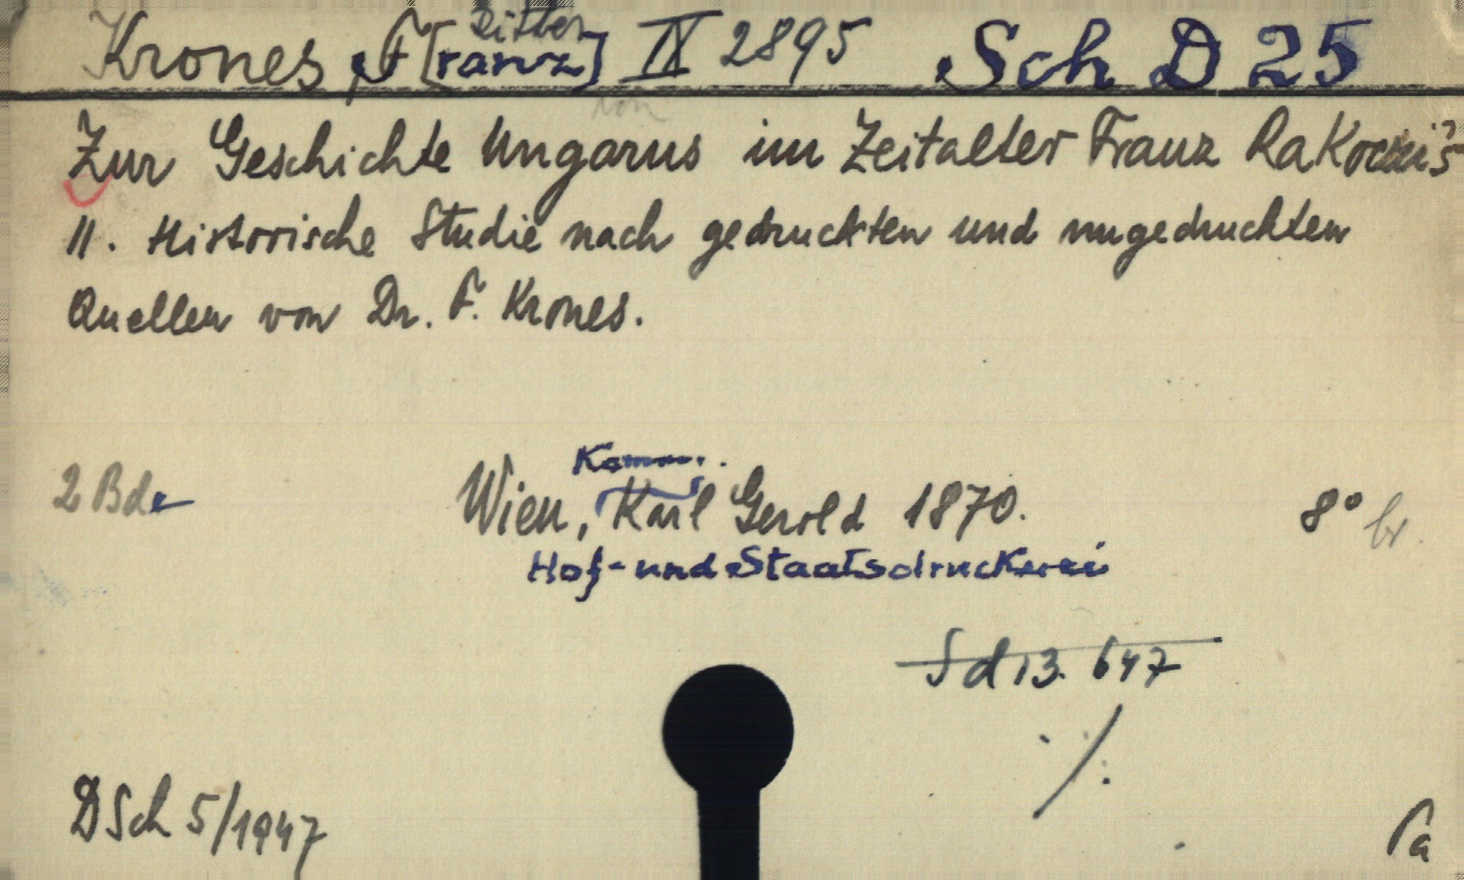 Krones, F[ranz] Ritter von IX 2895 Sch D 25
Zur Geschichte Ungarns im Zeitalter Franz Rakoczi's
II. Historische Studie nach gedruckten und ungedruckten
Quellen von Dr. F. Krones.
Komm.
2 Bde Wien, Karl Gerold 1870. 8° br.
Hof- und Staatsdruckerei
Sd 13. 647
./.
D Sch 5/1947